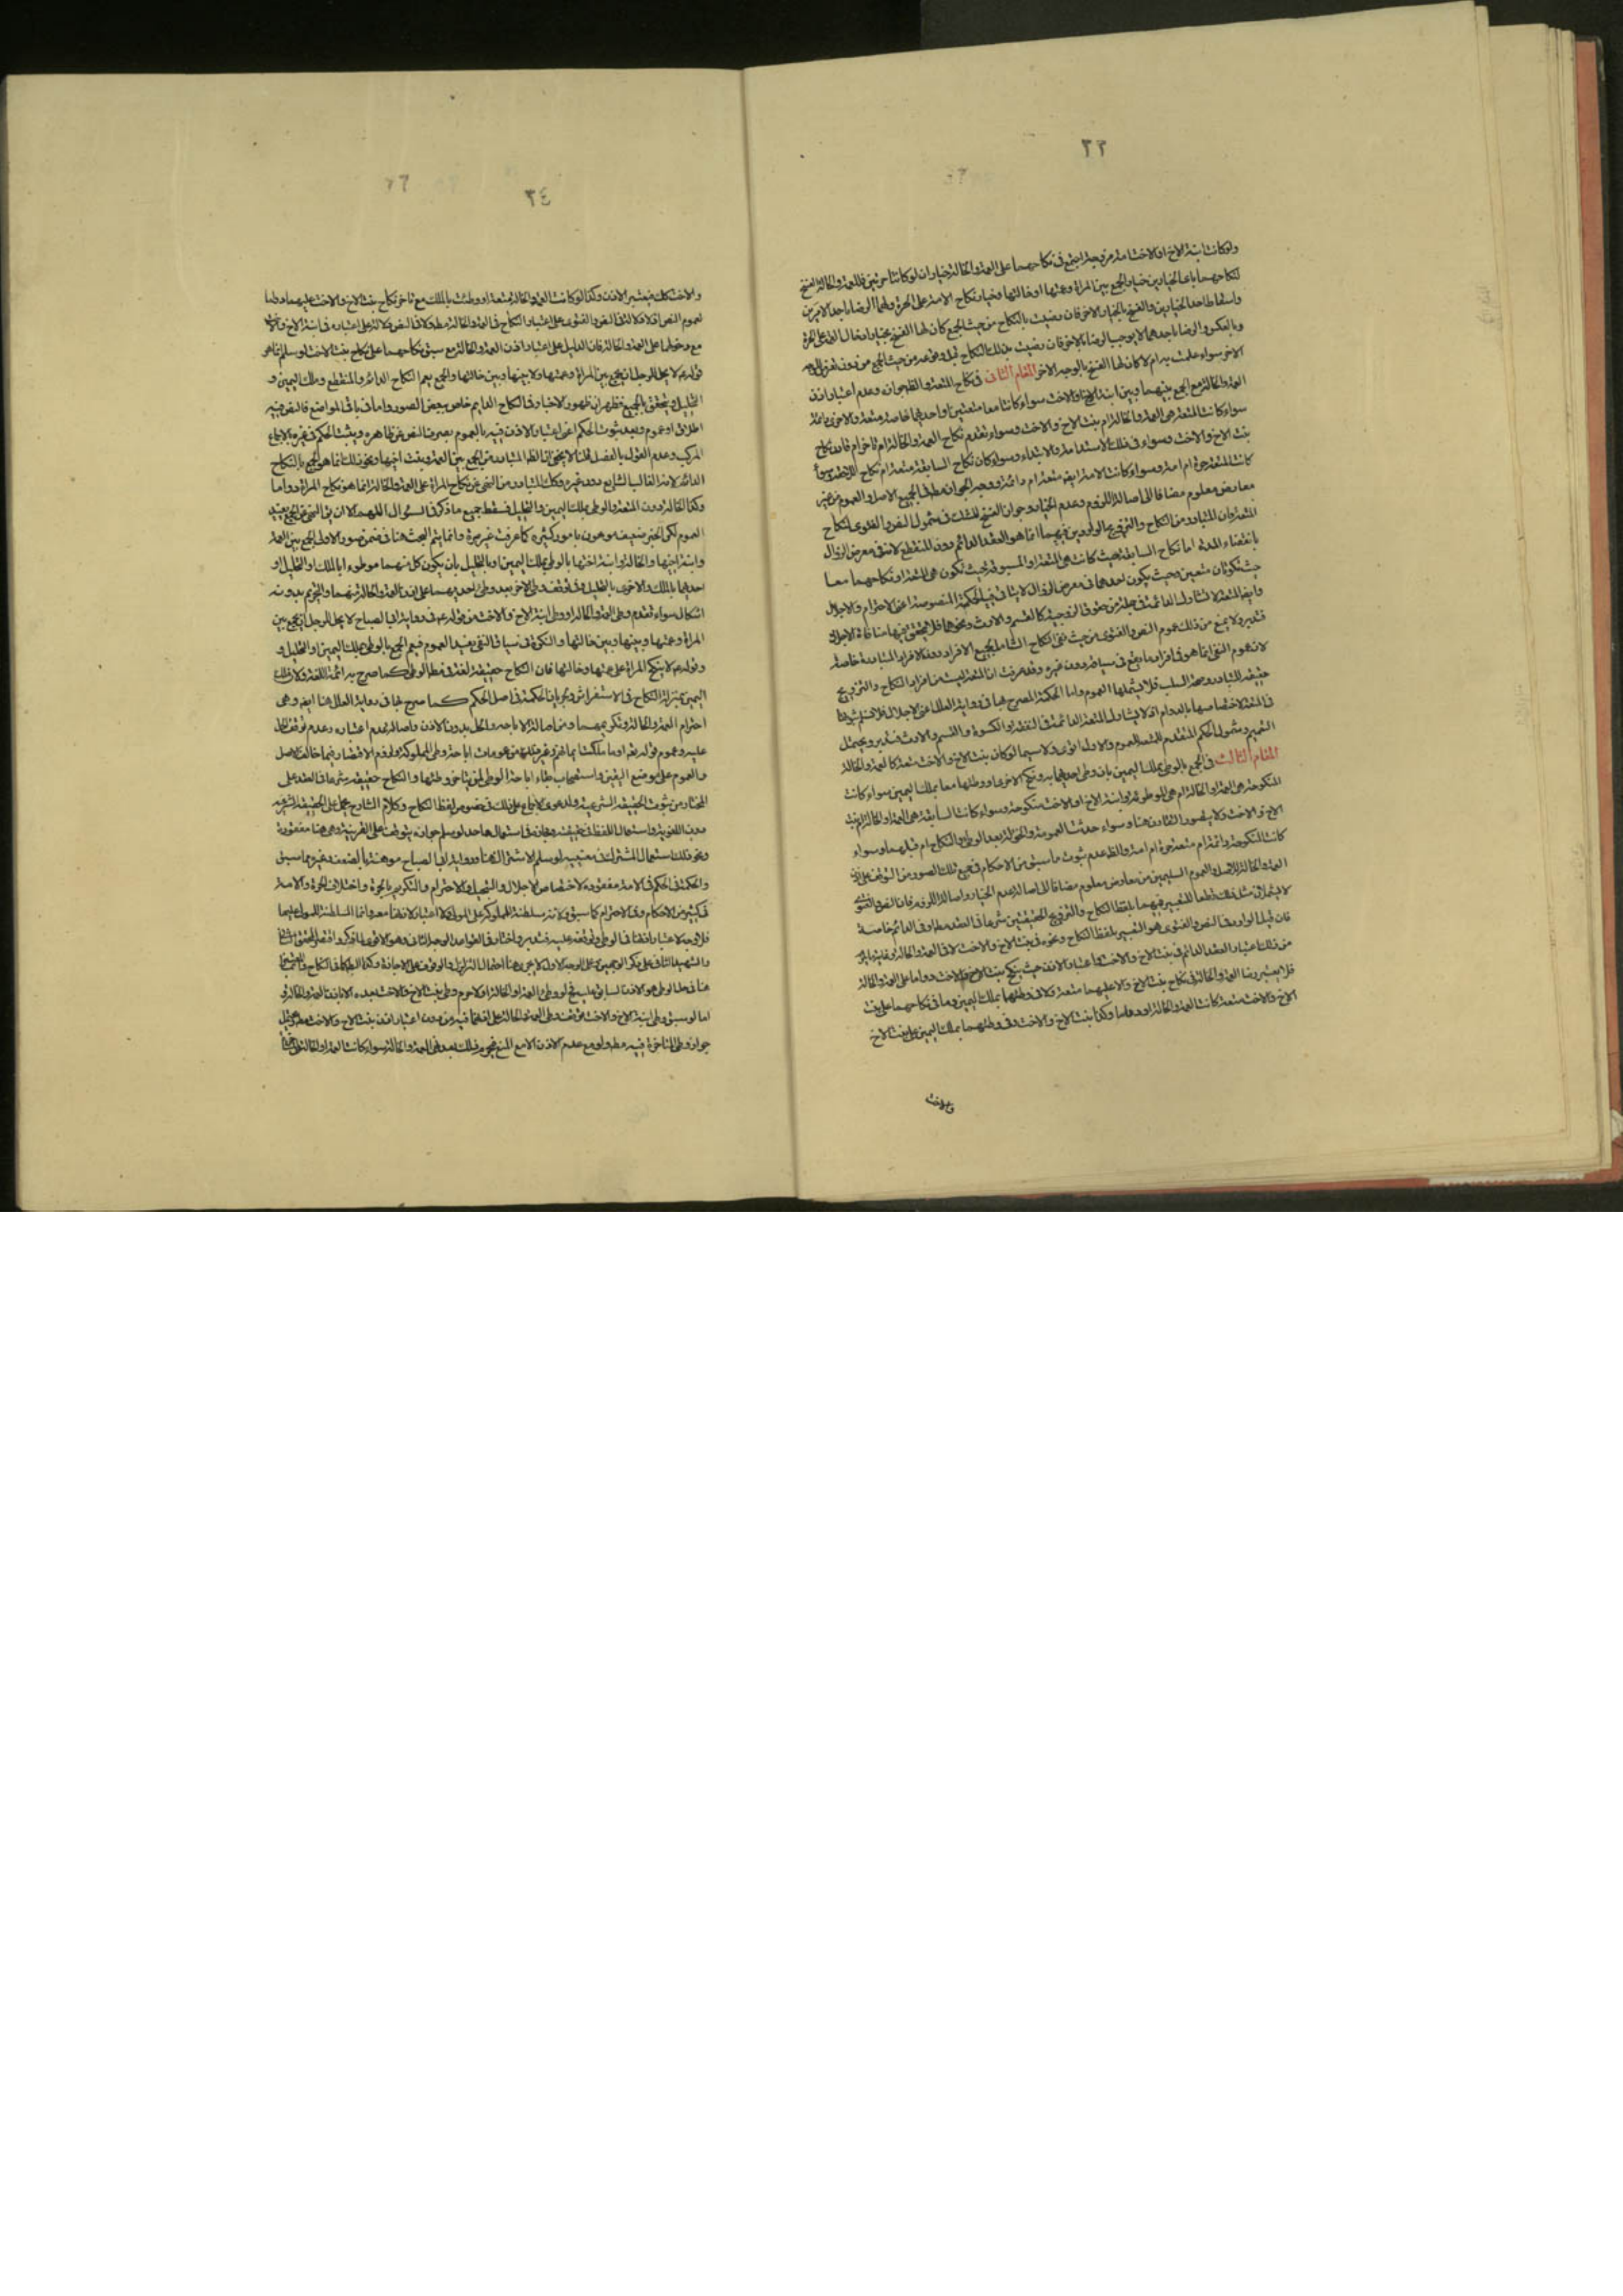 ٢٣
ولو كانت ابنة الاخ او الاخت امة مزوجة اجتمع في نكاحهما على العمة والخالة خياران لو كانتا حرتين فللعمة والخالة الفسخ
لنكاحهما باعد الخيارين خيار الجمع بين المراة وعمتها او خالتها وخيار نكاح الامة على الحرة ولهما الرضا باحد الامرين
واسقاط احد الخيارين والفسخ بالخيار الاخر فان رضيت بالنكاح من حيث الجمع كان لها الفسخ بخيار ادخال الامة على الحرة
وبالعكس والرضا باحدهما لا يوجب الرضا بالاخر فان رضيت بذلك النكاح قبل وقوعه من حيث الجمع من دون تعرض للوجه
الاخر سواء علمت به ام لا كان لها الفسخ بالوجه الاخر المقام الثاني في نكاح المتعة والظ جوازه وعدم اعتبار اذن
العمة والخالة مع الجمع بينهما وبين ابنة الاخ او الاخت سواء كانتا معا متعتين او احديهما خاصة متعة والاخرى دائمة
سواء كانت المتعة هي العمة والخالة ام بنت الاخ والاخت وسواء تقدم نكاح العمة والخالة ام تاخر ام قارن نكاح
بنت الاخ والاخت وسواء في ذلك الاستدامة والابتداء وسواء كان نكاح السابقة متعة ام نكاح اللاحقة وسواء
كانت المتعة حرة ام امة وسواء كانت الامة ايضا متعة ام دائمة ووجه الجواز مطلقا في الجميع الاصل والعموم من غير
معارض معلوم مضافا الى اصالة اللزوم وعدم الخيار وجواز الفسخ للشك في شمول النص والفتوى لنكاح
المتعة وان المتبادر من النكاح والتزويج الواردين فيهما انما هو العقد الدائم دون المنقطع لانه في معرض الزوال
بانقضاء المدة اما نكاح السابقة بحيث كانت هي المتعة او المسبوقة بحيث تكون هي المتعة او نكاحهما معا
حيث تكونان متعتين وحيث يكون احدهما في معرض الزوال لا يتاتى فيه الحكمة المنصوصة اعني الاحترام والاجلال
وايضا المتعة لا تتناول الدائمة في جملة من حقوق الزوجية كالقسم والارث ونحوهما فلا يتحقق فيها منافاة الاجلال
فتدبر ولا يمنع من ذلك عموم النص والفتوى من حيث نفي النكاح الشامل لجميع الافراد دون الافراد المتبادرة خاصة
لان عموم النفي انما هو في افراد ما وقع في سياقه دون غيره وقد عرفت ان المتعة ليست من افراد النكاح والتزويج
حقيقة للتبادر وصحة السلب فلا يشملها العموم واما الحكمة المصرح بها في رواية العلل اعني الاجلال فلا نسلم ثبوتها
في المتعة لاختصاصها بالدوام اذ لا يشارك المتعة الدائمة في النفقة والكسوة والقسم والارث فتدبر ويحتمل
التعميم وشمول الحكم المتقدم للمتعة للعموم والاول اقوى ولا سيما لو كان بنت الاخ والاخت متعة كالعمة والخالة
المقام الثالث في الجمع بالوطي بملك اليمين بان وطي احديهما به ونكح الاخرى او وطئها معا بملك اليمين سواء كانت
المنكوحة هي العمة او الخالة ام هي الموطوئة وابنة الاخ او الاخت منكوحة وسواء كانت السابقة هي العمة او الخالة ام بنت
الاخ والاخت ولا يتصور التقارن هنا وسواء حدثت العمومة والخؤلة بعد الوطي والنكاح ام قبلهما وسواء
كانت المنكوحة دائمة ام متعة حرة ام امة والظ عدم ثبوت ما سبق من الاحكام في جميع تلك الصور من التوقف على اذن
العمة والخالة للاصل والعموم السليمين من معارض معلوم مضافا الى اصالة عدم الخيار واصالة اللزوم فان النص والفتوى
لا يشملان مثل ذلك قطعا للتعبير فيهما بلفظ النكاح والتزويج الحقيقيين شرعا في العقد مط او في الدائم خاصة
فان قيل الوارد في النص والفتوى هو التعبير بلفظ النكاح ونحوه في بنت الاخ والاخت لا في العمة والخالة وغاية ما يلزم
من ذلك اعتبار العقد الدائم في بنت الاخ والاخت واعتبار الاذن حيث ينكح بنت الاخ والاخت دواما على العمة والخالة
فلا يعتبر رضا العمة والخالة في نكاح بنت الاخ والاخت عليهما متعة ولا في وطئها بملك اليمين وما في نكاحهما على بنت
الاخ والاخت متعة كانت العمة والخالة او دواما وكذا بنت الاخ والاخت وفي وطئهما بملك اليمين على بنت الاخ
والاخت
٢٤
والاخت كك فيعتبر الاذن وكذا لو كانت العمة والخالة متعة او وطئت بالملك مع تاخر نكاح بنت الاخ والاخت عليهما دواما
لعموم النص اذ لا دلالة في النص والفتوى على اعتبار النكاح في العمة والخالة مط ولا في النص دلالة على اعتباره في ابنة الاخ والاخت
مع دخولها على العمة والخالة فان الدليل على اعتبار اذن العمة والخالة مع سبق نكاحهما على نكاح بنت الاخت لو سلم انما هو
قوله ع لا يحل للرجل ان يجمع بين المراة وعمتها ولا بينها وبين خالتها والجمع يعم النكاح الدائم والمنقطع وملك اليمين و
التحليل ويتحقق بالجميع فظهر ان ظهور الاخبار في النكاح الدايم خاص ببعض الصور واما في باقي المواضع فالنص فيه
اطلاق او عموم وبعد ثبوت الحكم اعني اعتبار الاذن فيه بالعموم يصرف النص عن ظاهره ويثبت الحكم في غيره بالاجماع
المركب وعدم القول بالفصل قلنا لا يخفى ان الظ المتبادر من الجمع بين العمة وبنت اخيها ونحو ذلك انما هو الجمع بالنكاح
الدائم لانه الغالب الشايع دون غيره وكذا المتبادر من النهي عن نكاح المراة على العمة والخالة انما هو نكاح المراة دواما
وكذا الخالة دون المتعة والوطي بملك اليمين والتحليل فسقط جميع ما ذكر في السؤال اللهم الا ان يق النهي عن الجمع يفيد
العموم لكن الخبر ضعيف موهون بامور كثيرة كما عرفت غير مرة وانما يتم البحث هنا في ضمن صور الاولى الجمع بين العمة
وابنة اخيها والخالة وابنة اختها بالوطي بملك اليمين او بالتحليل بان يكون كل منهما موطوءا بالملك او التحليل او
احديهما بالملك والاخرى بالتحليل وفي توقف وطي الاخر بعد وطي احديهما على اذن العمة والخالة منهما والتحريم بدونه
اشكال سواء تقدم وطي العمة والخالة او وطي ابنة الاخ والاخت من قوله ع في رواية ابي الصباح لا يحل للرجل ان يجمع بين
المراة وعمتها وبينها وبين خالتها والنكرة في سياق النفي يفيد العموم فيعم الجمع بالوطي بملك اليمين او التحليل و
وقوله ع لا ينكح المراة على عمتها وخالتها فان النكاح حقيقة لغة في مط الوطي كما صرح به ائمة اللغة ولان ملك
اليمين بمنزلة النكاح في الاستفراش وجريان الحكمة في اصل الحكم كما صرح بها في رواية العلل هنا ايضا وهي
احترام العمة والخالة وتكريمهما ومن اصالة الاباحة والحل بدون الاذن واصالة عدم اعتباره وعدم توقف الحل
عليه وعموم قوله تعالى او ما ملكت ايمانكم وغيرها من عمومات اباحة وطي المملوكة ولزوم الاقتصار فيما خالف الاصل
والعموم على موضع اليقين واستصحاب بقاء اباحة الوطي لمن يتاخر وطئها والنكاح حقيقة شرعا في العقد على
المختار من ثبوت الحقيقة الشرعية ولدعوى الاجماع على ذلك في خصوص لفظ النكاح وكلام الشارع يحمل على الحقيقة الشرعية
دون اللغوية واستعمال اللفظ في حقيقته ومجازه في استعمال واحد لو سلم جوازه يتوقف على القرينة وهي هنا مفقودة
ونحو ذلك استعمال المشترك في معنييه لو سلم الاشتراك هنا ورواية ابي الصباح موهنة بالضعف وغيره بما سبق
والحكمة في الحكم في الامة مفقودة لاختصاص الاجلال والتبجيل والاحترام والتكريم بالحرة واختلاف الحرة والامة
في كثير من الاحكام وفي الاحترام كما سبق ولانه لا سلطنة للمملوكة على المولى ولا اعتبار لاذنها معه وانما السلطنة للمولى عليها
فلا وجه لاعتبار اذنها في الوطي وتوقفه عليه فتدبر واختار في القواعد الوجه الثاني وهو الاقوى لما ذكر واقتصر المحقق الثاني
والشهيد الثاني على ذكر الوجهين وعلى الوجه الاول لا يجري هنا احتمال التزلزل والوقوف على الاجازة وكذا البطلان في النكاح
هنا في حل الوطي هو الاذن السابق عليه فلو وطي العمة او الخالة اولا حرم وطي بنت الاخ والاخت بعده الا باذن العمة والخالة و
اما لو سبق وطي ابنة الاخ والاخت توقف وطي العمة والخالة على اذنهما فيه من دون اعتبار اذن بنت الاخ والاخت مط ويحتمل
جواز وطي المتاخرة فيه مط ولو مع عدم الاذن الا مع المنع فيحرم وكذلك بعد وطي العمة والخالة سواء كانت العمة او الخالة